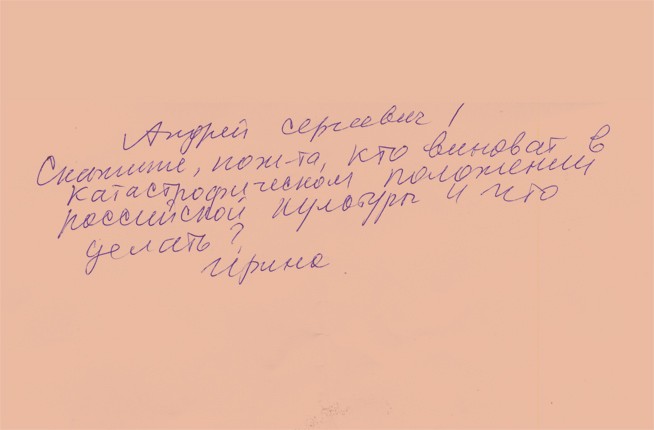 Андрей Сергеевич!
Скажите, пож-та, кто виноват в
катастрофическом положении
российской культуры и что
делать?
Ирина